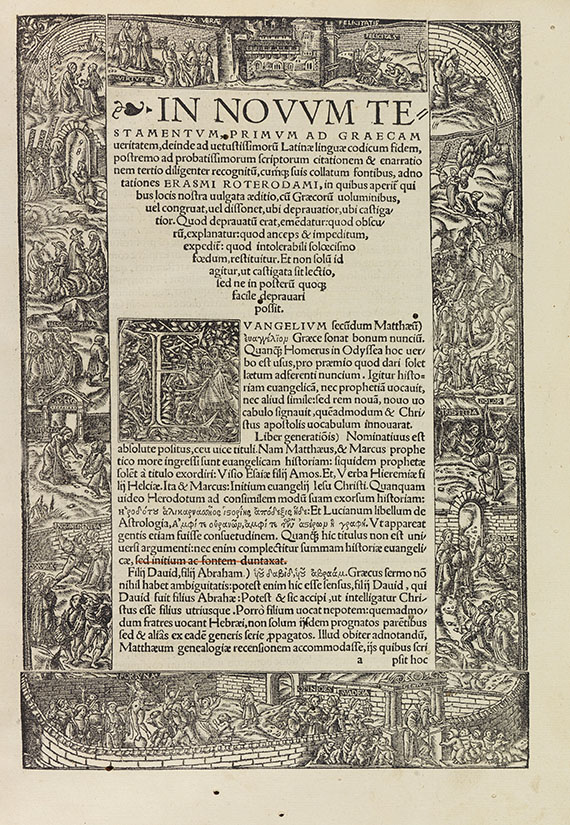 ARX VERAE FELICITATIS
FELICITAS
VIRTUTES
IN NOVVM TE=
STAMENTVM, PRIMVM AD GRAECAM
ueritatem, deinde ad uetustissimorũ Latinæ linguæ codicum fidem,
postremo ad probatissimorum scriptorum citationem & enarratio
nem tertio diligenter recognitũ, cumq; suis collatum fontibus, adno
tationes ERASMI ROTERODAMI, in quibus aperit̃ qui
bus locis nostra uulgata æditio, cũ Græcorũ uoluminibus,
uel congruat, uel dissonet, ubi deprauatior, ubi castiga/
tior. Quod deprauatũ erat, emẽdatur: quod obscu
rũ, explanatur: quod anceps & impeditum,
expedit̃: quod intolerabili solœcismo
fœdum, restituitur. Et non solũ id
agitur, ut castigata sit lectio,
sed ne in posterũ quoq;
facile deprauari
possit.
EVANGELIVM secũdum Matthæũ)
εὐαγγέλιομ Græce sonat bonum nunciũ.
Quanq̃ Homerus in Odyssea hoc uer/
bo est usus, pro præmio quod dari solet
lætum adferenti nuncium. Igitur histo/
riam euangelicã, nec prophetiã uocauit,
nec aliud simile: sed rem nouã, nouo uo
cabulo signauit, quẽadmodum & Chri/
stus apostolis uocabulum innouarat.
Liber generatiõis) Nominatiuus est
absolute positus, ceu uice tituli. Nam Matthæus, & Marcus prophe
tico more ingressi sunt euangelicam historiam: siquidem prophetæ
solẽt à titulo exordiri: Visio Esaiæ filij Amos. Et, Verba Hieremiæ fi
lij Helciæ. Ita & Marcus: Initium euangelij Iesu Christi. Quanquam
uideo Herodotum ad consimilem modũ suam exorsum historiam:
ἡροδότου ἁλικαρνασσῆος ἱστορίης ἀπόδεξις ἥδε: Et Lucianum libellum de
Astrologia, Ἀμφί τε οὐρανῶμ, ἀμφί τε ἀστέρωμ ἡ γραφή. Vt appareat
gentis etiam fuisse consuetudinem. Quanq̃ hic titulus non est uni/
uersi argumenti: nec enim complectitur summam historiæ euangeli/
cæ, sed initium ac fontem duntaxat.
Filij Dauid, filij Abraham.) ἱου δαβὶδ, ἱου ἀβραάμ. Græcus sermo nõ
nihil habet ambiguitatis: potest enim hic esse sensus, filij Dauid, qui
Dauid fuit filius Abrahæ: Potest & sic accipi, ut intelligatur Chri/
stus esse filius utriusque. Porrò filium uocat nepotem: quemadmo/
dum fratres uocant Hebræi, non solum ijsdem prognatos parẽtibus
sed & aliãs ex eadẽ generis serie ꝓpagatos. Illud obiter adnotandũ,
Matthæum genealogiæ recensionem accommodasse, ijs quibus scri
a psit hoc
DOLOR
TRISTICIA
OPINIONES